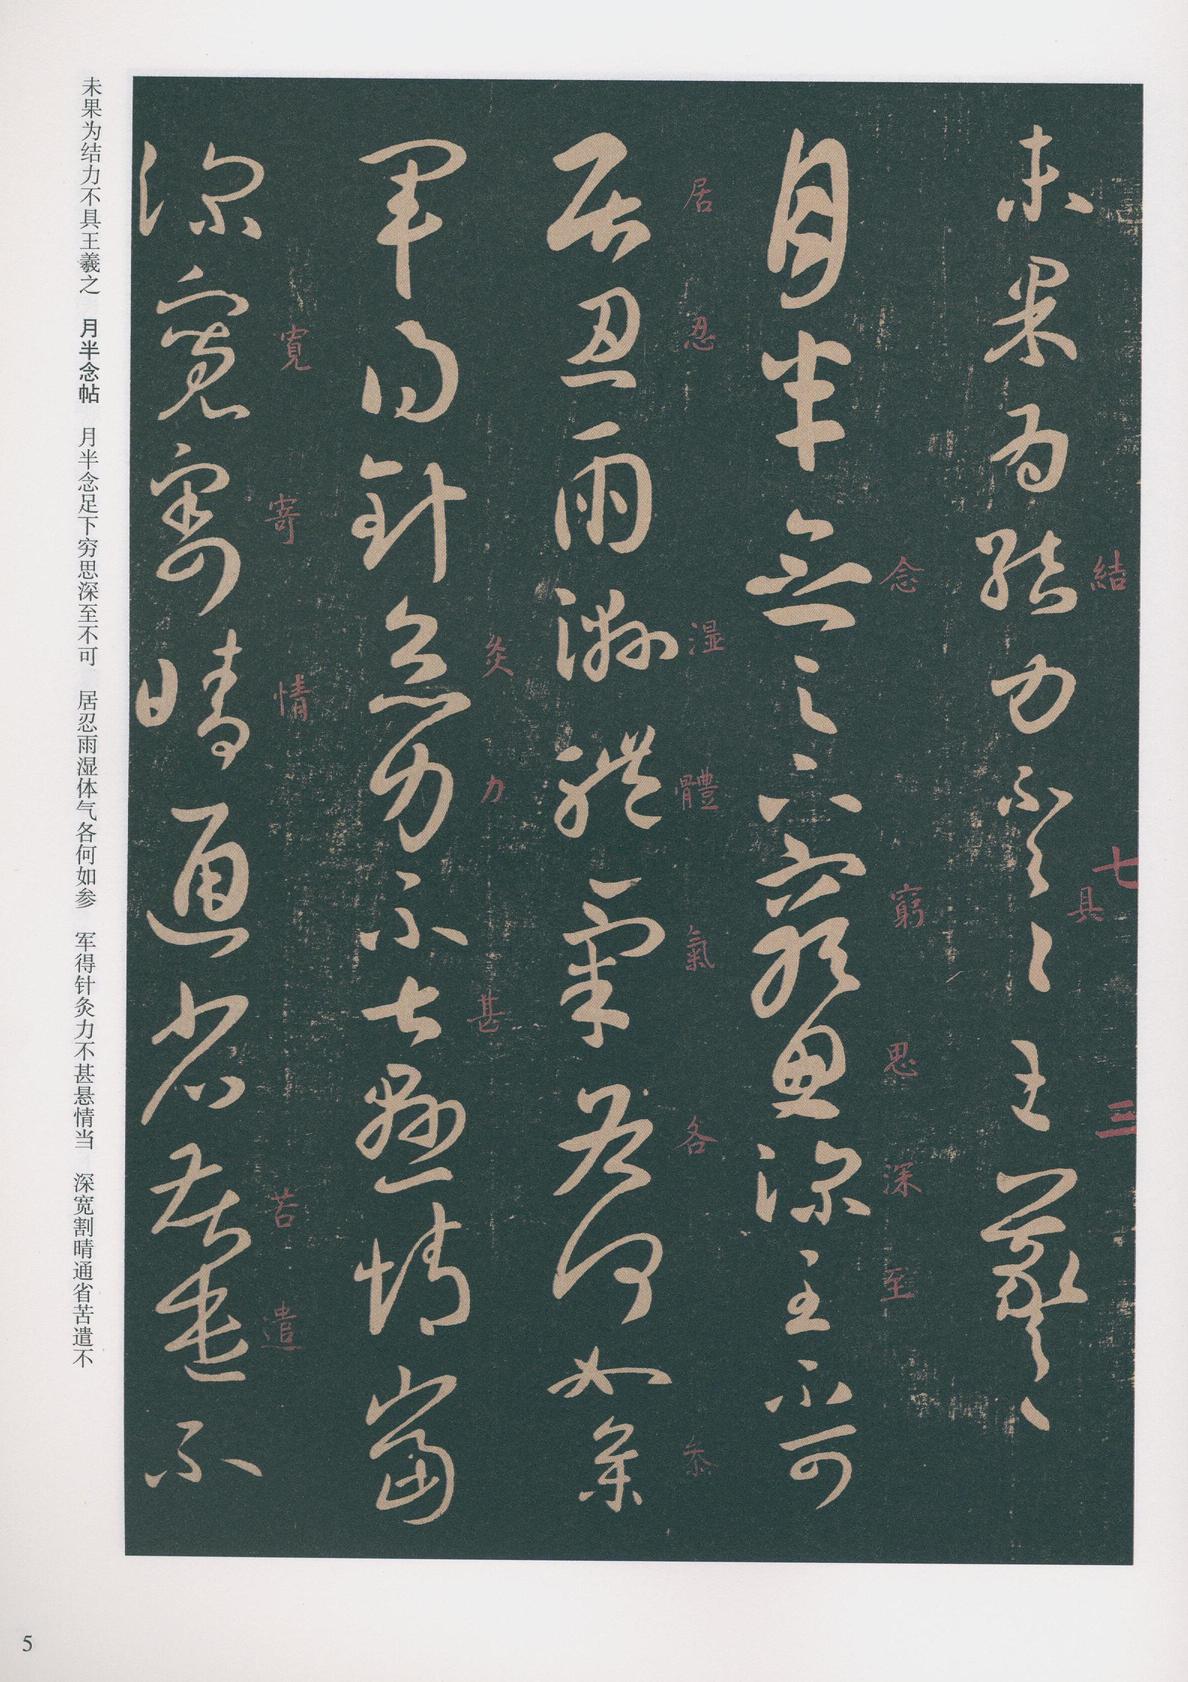 未果为结力不具王羲之　月半念帖　月半念足下穷思深至不可　居忍雨湿体气各何如参　军得针灸力不甚悬情当　深宽割晴通省苦遣不
未果為結力不具王羲之
七
三
結
具
月半念足下窮思深至不可
念
窮
思
深
至
居忍雨濕體氣各何如參
居
忍
湿
體
氣
各
叅
軍得針灸力不甚懸情當
灸
力
甚
深寬割晴通省苦遣不
寛
寄
情
苦
遣
5